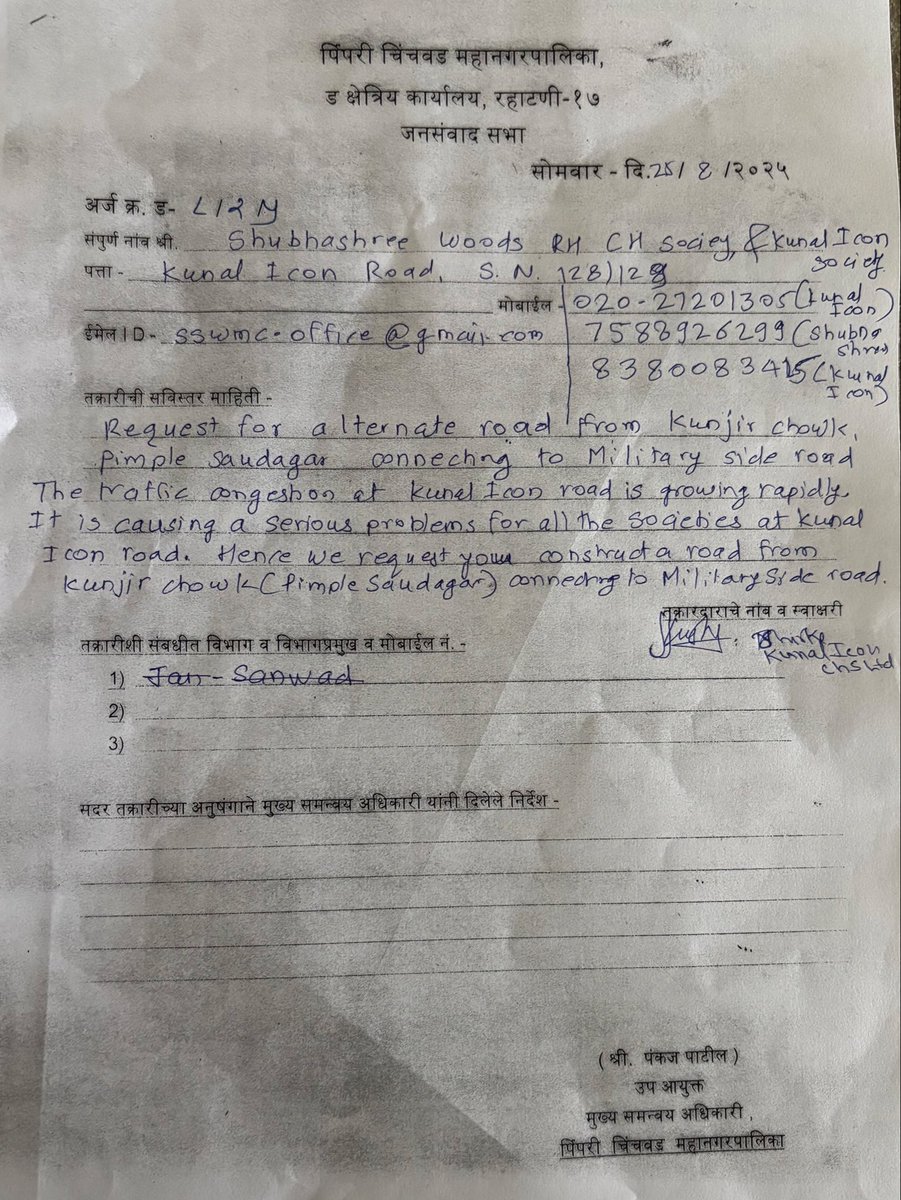 पिंपरी चिंचवड महानगरपालिका,
ड क्षेत्रिय कार्यालय, रहाटणी-१७
जनसंवाद सभा
सोमवार - दि.25/ 8 /२०२५
अर्ज क्र. ड-
संपुर्ण नांव श्री. Shubhashree Woods RH CH Society & Kunal Icon Society
पत्ता - Kunal Icon Road, S.N. 128/129
मोबाईल - 020-27201305 (Kunal Icon)
ईमेल ID- sswmc-office@gmail.com 7588926299 (Shubha Shree
8380083415 (Kunal Icon)
तक्रारीची सविस्तर माहिती -
Request for alternate road from Kunjir chowk,
Pimple Saudagar connechng to Military side road
The traffic congeshon at Kunal Icon road is growing rapidly
It is causing a serious problems for all the societies at Kunal
Icon road. Hence we request you construct a road from
Kunjir chowk (Pimple Saudagar) connechng to Military Side road.
तक्रारदाराचे नांव व स्वाक्षरी
Kunal Icon
CHS Ltd
तक्रारीशी संबधीत विभाग व विभागप्रमुख व मोबाईल नं. -
1) Jan-Sanwad
2)
3)
सदर तक्रारीच्या अनुषंगाने मुख्य समन्वय अधिकारी यांनी दिलेले निर्देश -
( श्री. पंकज पाटील )
उप आयुक्त
मुख्य समन्वय अधिकारी ,
पिंपरी चिंचवड महानगरपालिका